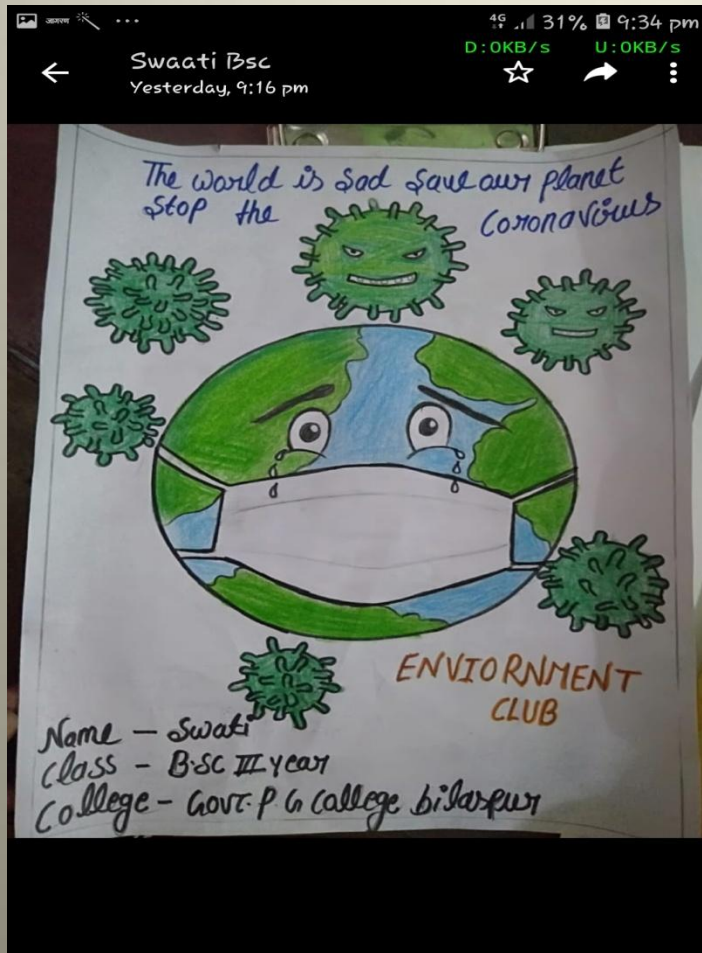 आगरण ... 4G 31% 9:34 pm
D:0KB/s U:0KB/s
Swaati Bsc
Yesterday, 9:16 pm
The world is sad save our planet
stop the coronavirus
ENVIORNMENT
CLUB
Name – Swati
Class – B.SC III year
College – Govt. P G College bilaspur